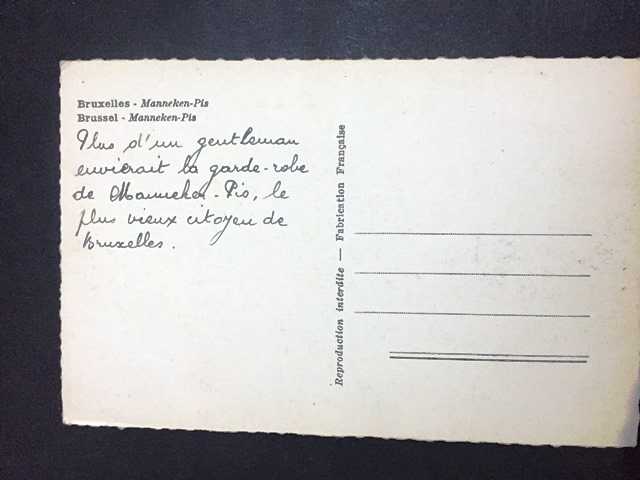 Bruxelles - Manneken-Pis
Brussel - Manneken-Pis
Plus d'un gentleman
envierait la garde-robe
de Manneken-Pis, le
plus vieux citoyen de
Bruxelles.
Reproduction interdite — Fabrication Française